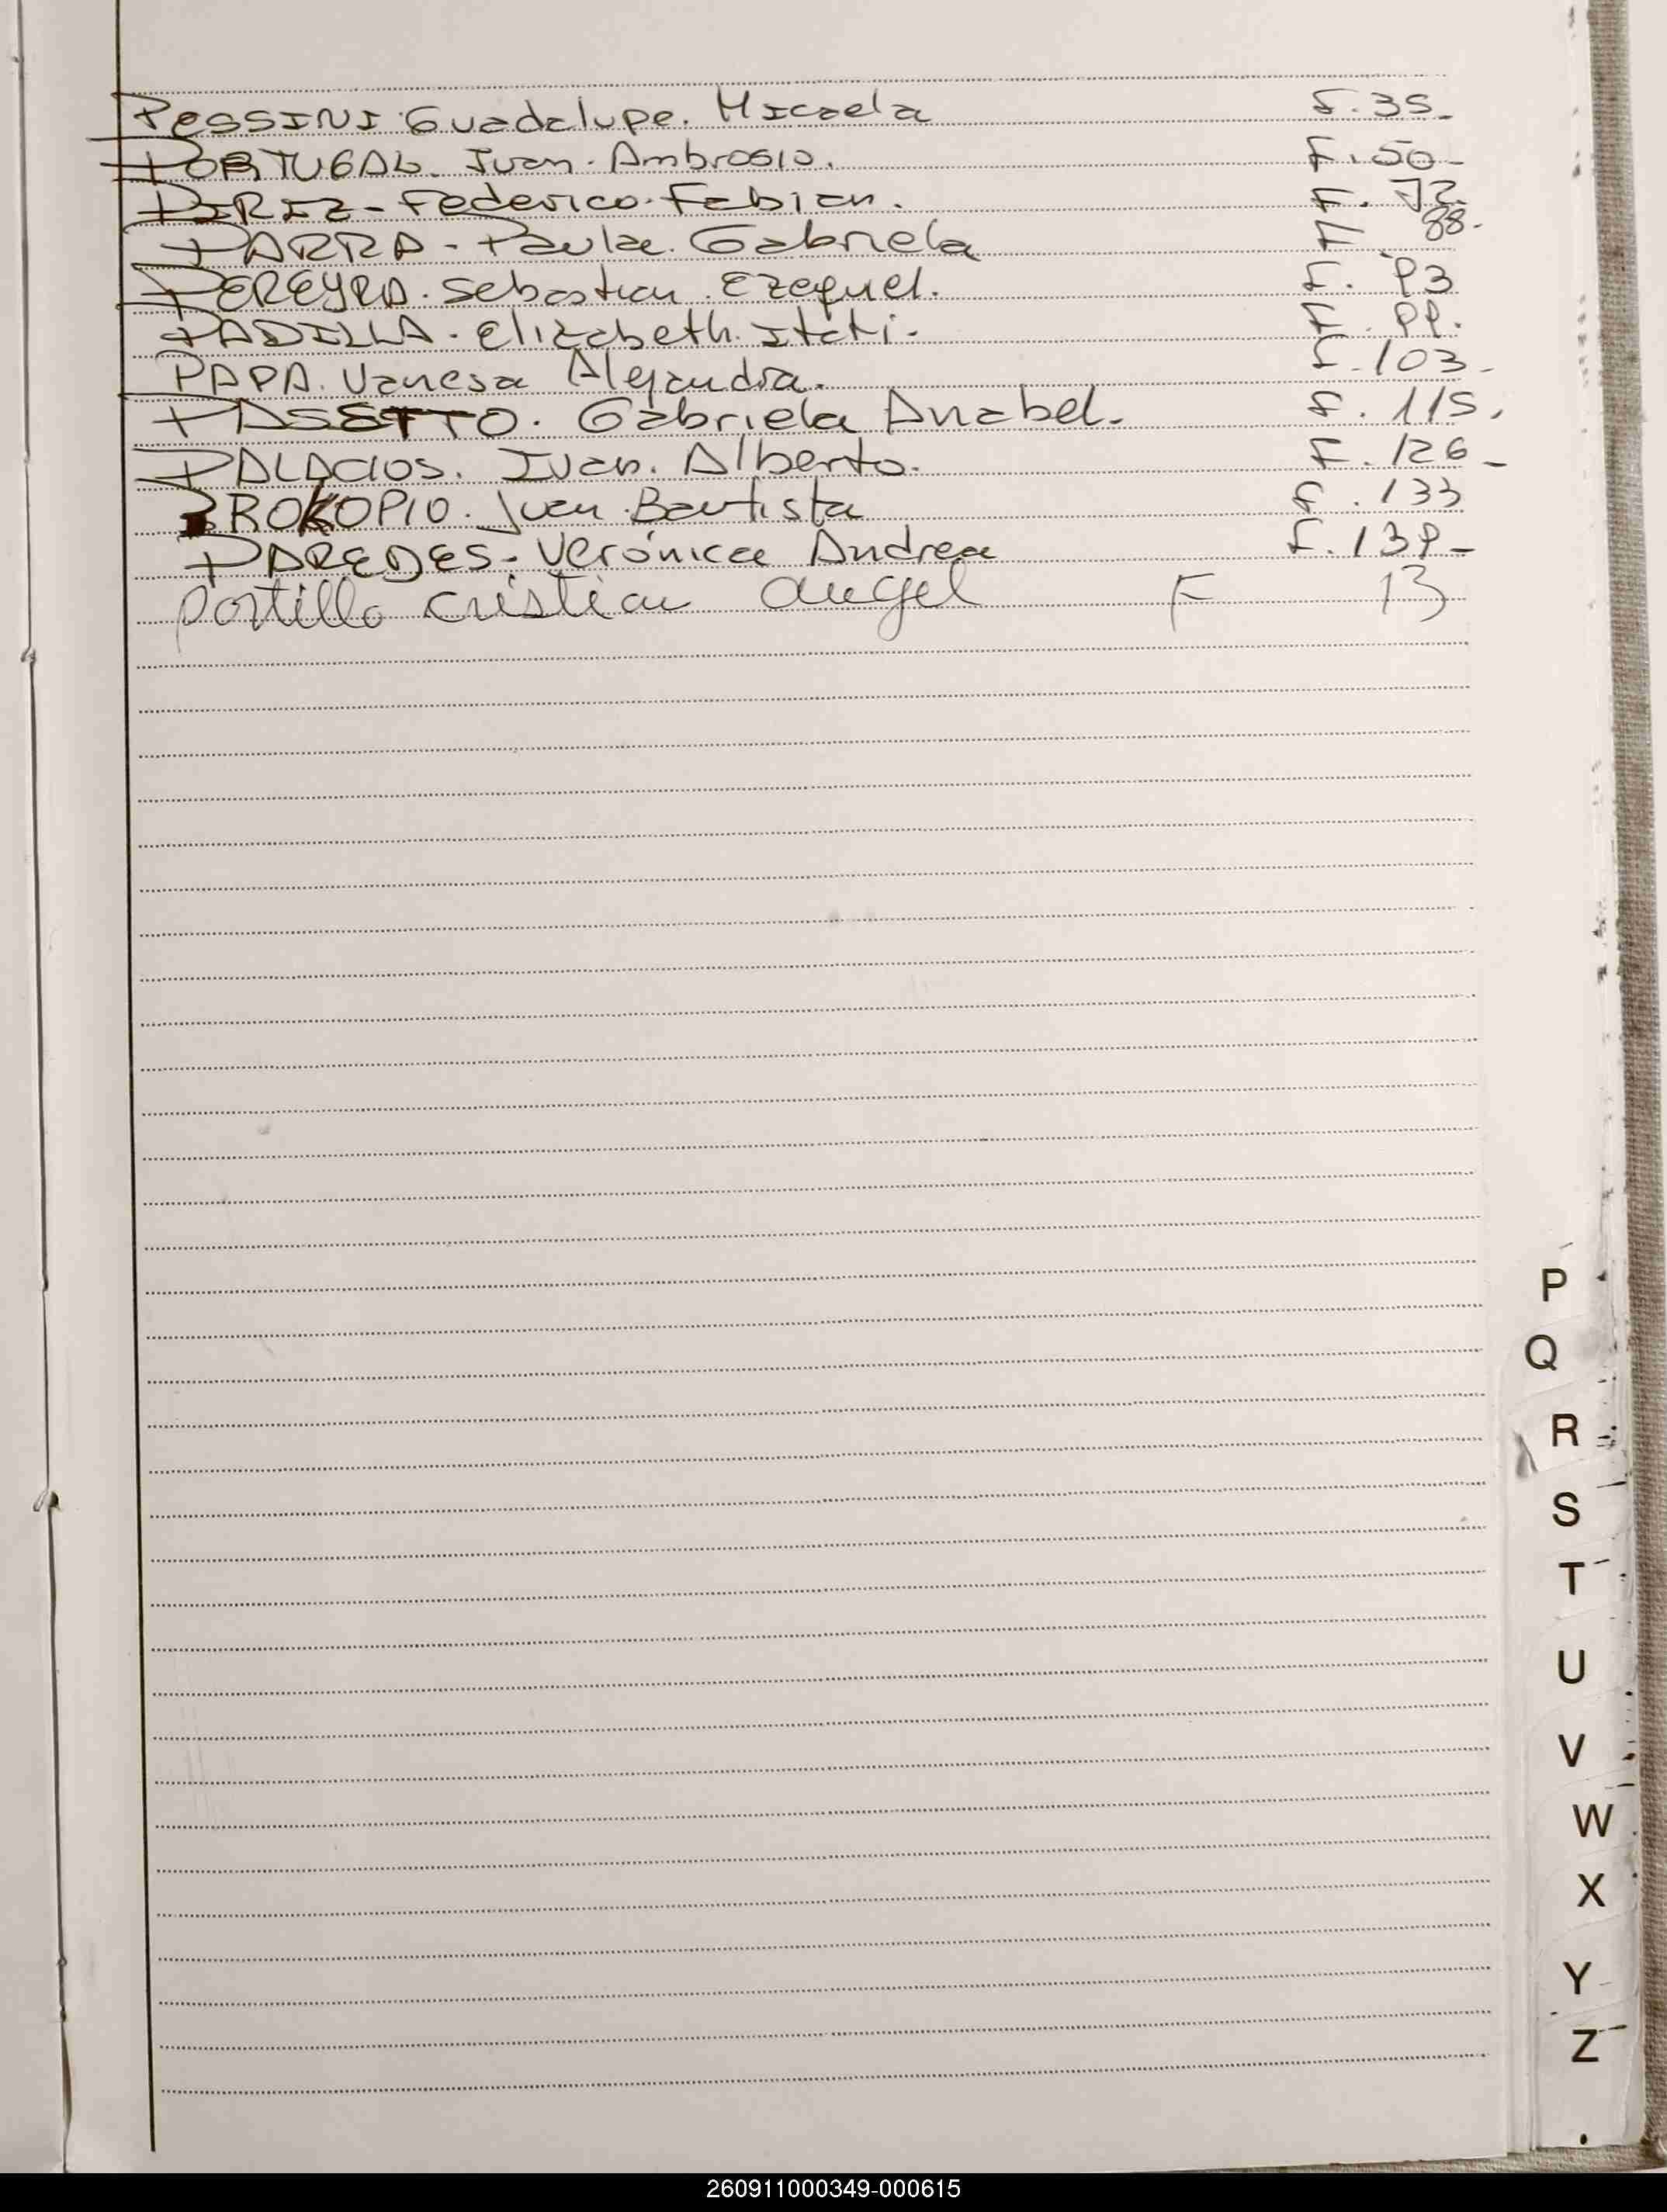 PESSINI Guadalupe. Micaela F. 35-
PORTUGAL. Juan. Ambrosio. F. 50-
PEREZ - Federico. Fabian. F. 72
PARRA - Paula. Gabriela F. 88-
PEREYRA. Sebastian. Ezequiel. F. 93
PADILLA. Elizabeth. Itati. F. 99.
PAPA. Vanesa Alejandra. F. 103-
PASETTO. Gabriela Anabel. F. 115.
PALACIOS. Ivan. Alberto. F. 126-
PROKOPIO. Juan. Bautista F. 133
PAREDES - Verónica Andrea F. 139-
portillo cristian angel F 13
P
Q
R
S
T
U
V
W
X
Y
Z
260911000349-000615